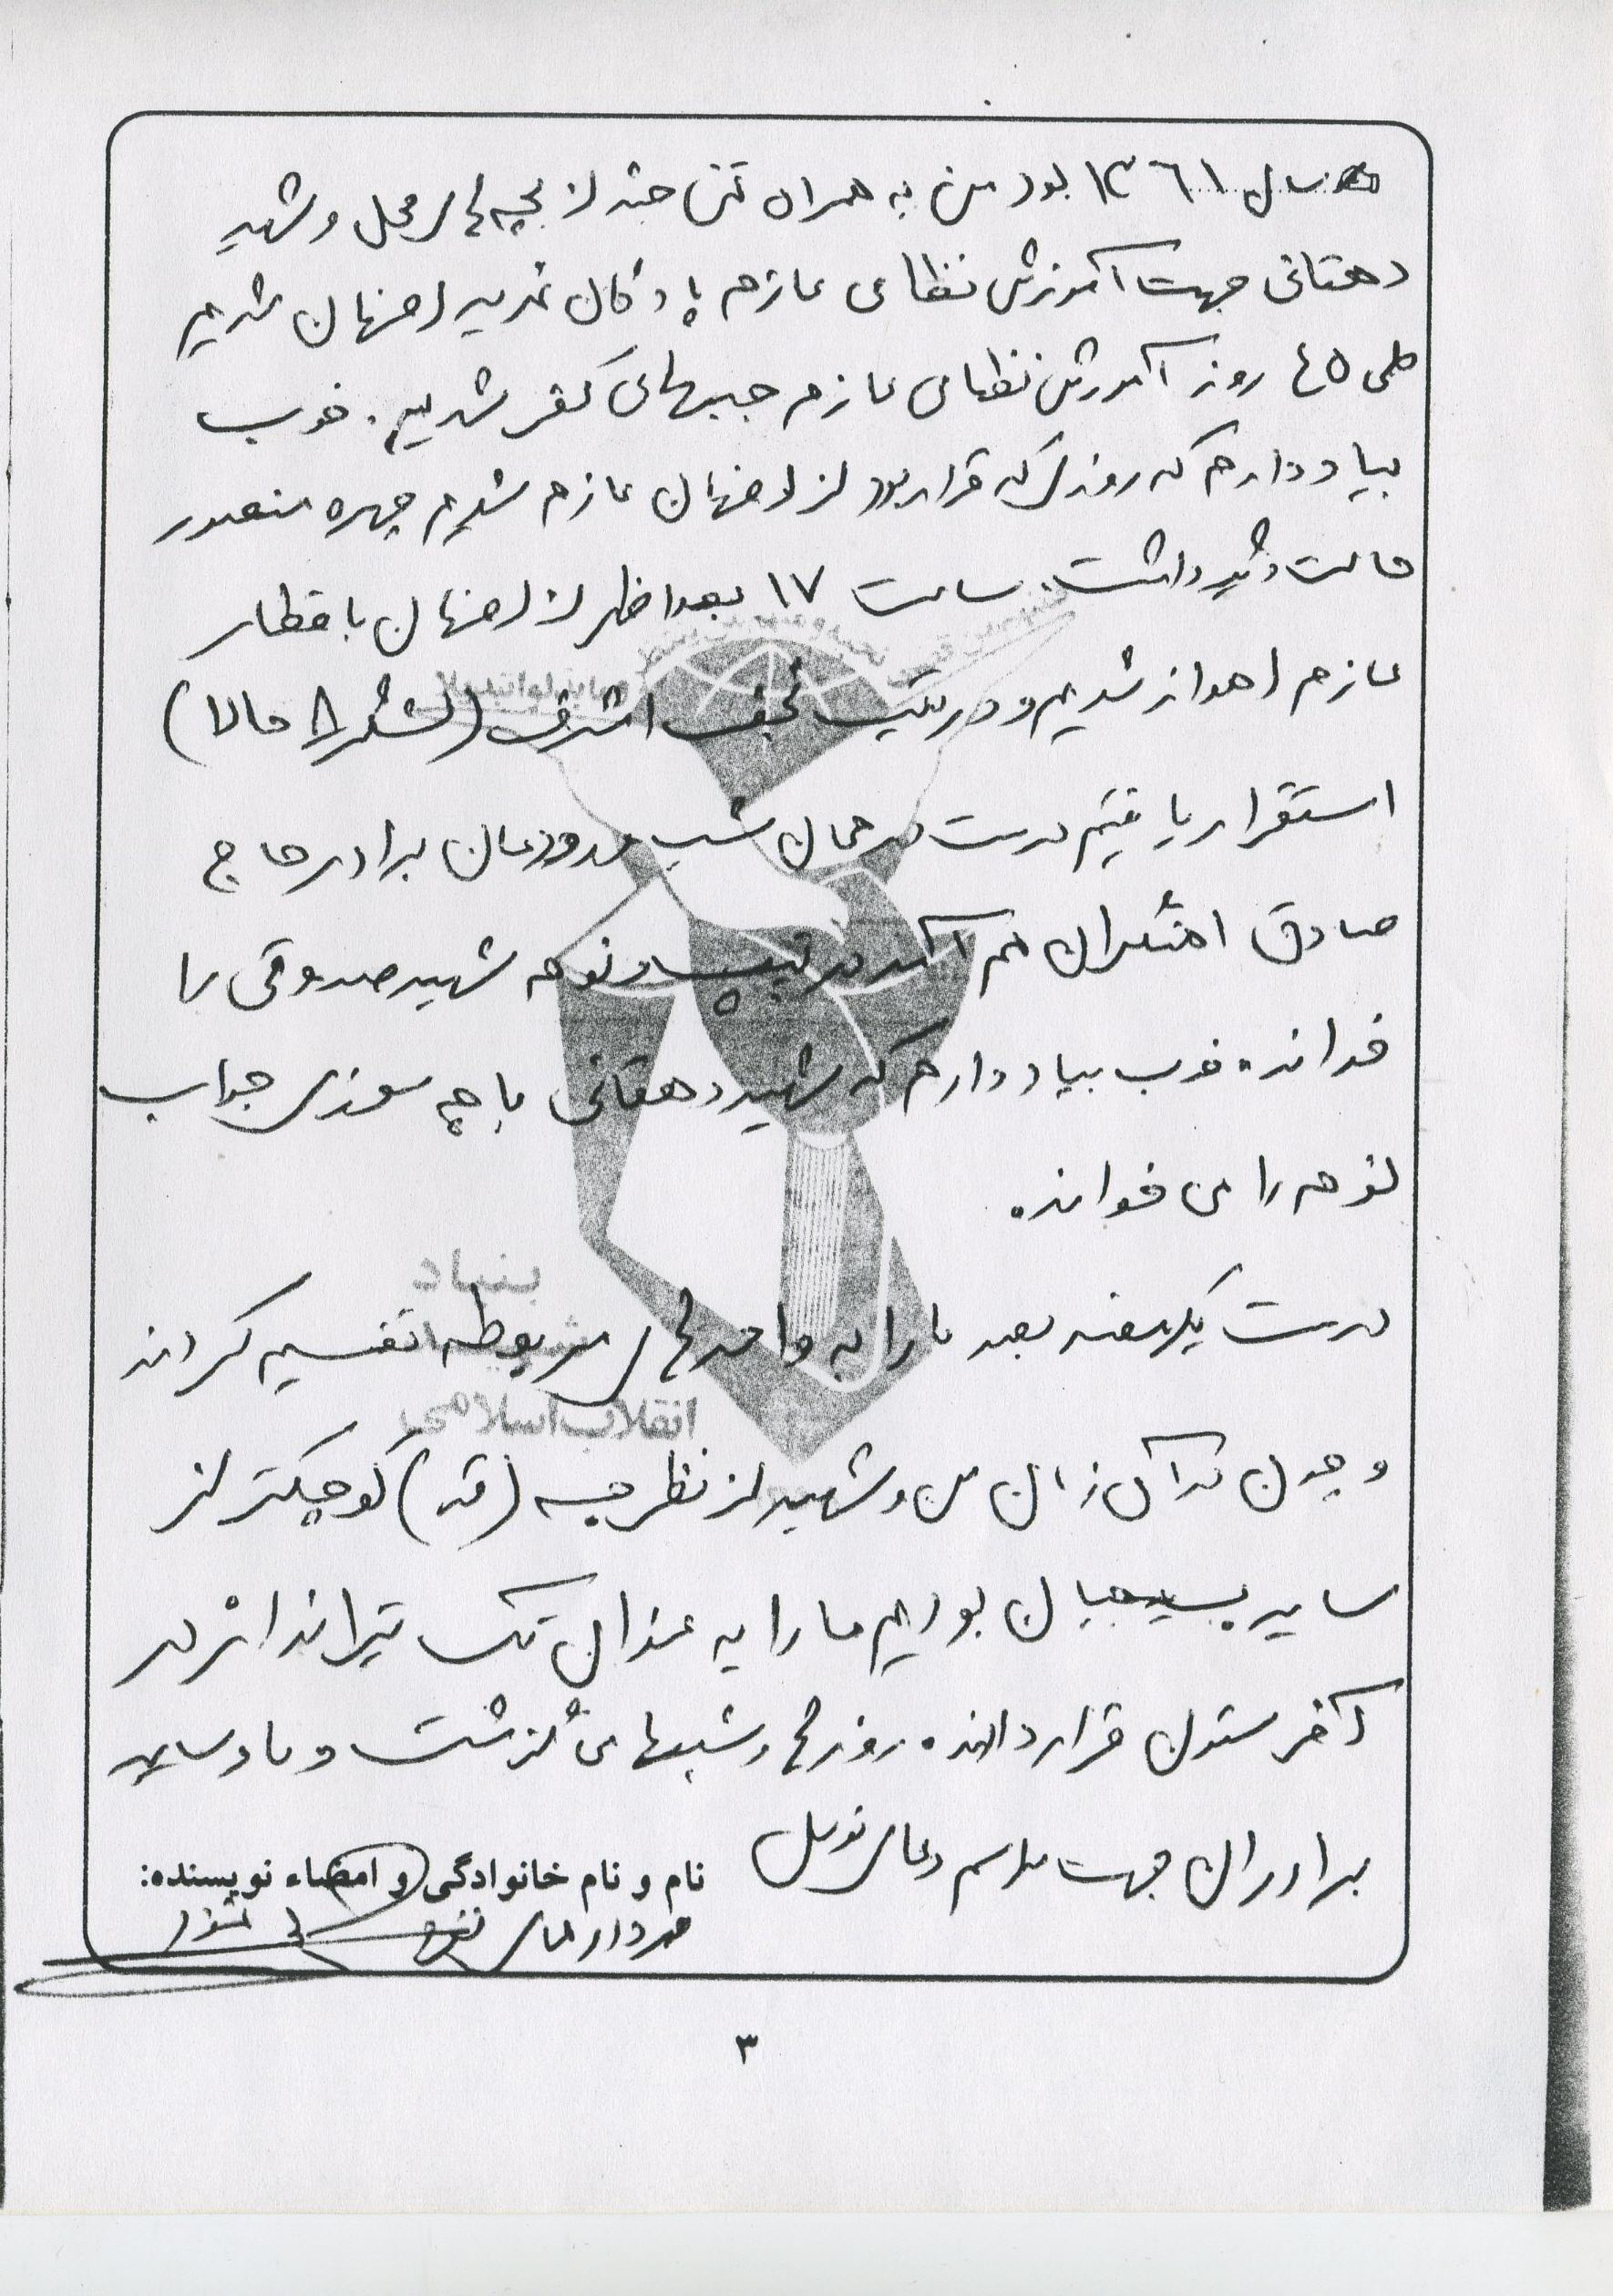 سال ۱۳۶۱ بود من به همراه تنی چند از بچه های محل و شهید
دهقانی جهت آموزش نظامی عازم پادگان غدیر اصفهان شدیم
طی ۴۵ روز آموزش نظامی عازم جبههای کفر شدیم. خوب
بیاد دارم که روزی که قرار بود از اصفهان عازم شدیم چهره منصور
حالت دیگر داشت. ساعت ۱۷ بعدا ظهر از اصفهان با قطار
عازم اهواز شدیم و در تیپ نجف اشرف (لشگر ۸ حالا)
استقرار یافتیم درست در همان شب ورودمان برادر حاج
صادق آهنگران هم آمد در تیپ و نوحه شهید صدوقی را
خواند. خوب بیاد دارم که شهید دهقانی با چه سوزی جواب
نوحه را می خواند.
درست یکهفته بعد ما را به واحد های مربوطه تقسیم کردند
و چون در آن زمان من و شهید از نظر جسه (قد) کوچکتر از
سایر بسیجیان بودیم ما را به عنوان تک تیرانداز در
آخر ستون قرار دادند. روزها و شبهای گذشت و ما و سایر
برادران جهت مراسم دعای توسل
نام و نام خانوادگی و امضاء نویسنده:
بنیاد
انقلاب اسلامی
۳